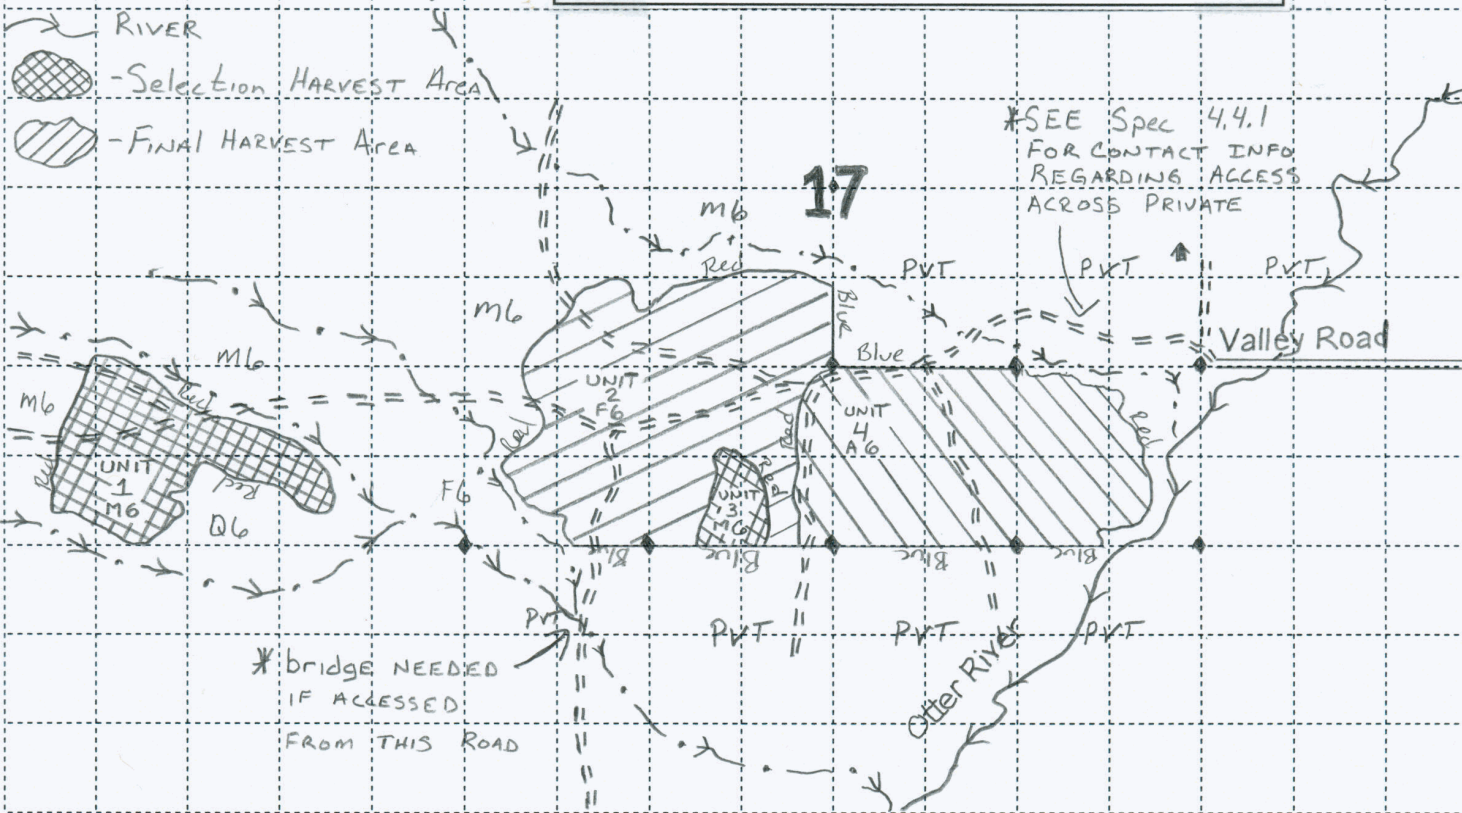 RIVER
-Selection HARVEST Area
-FINAL HARVEST Area
*SEE Spec 4.4.1
FOR CONTACT INFO
REGARDING ACCESS
ACROSS PRIVATE
17
M6
Red
PVT
PVT
PVT
M6
Blue
Valley Road
M6
Blue
M6
Red
UNIT
2
F6
UNIT
4
A6
Red
Red
Red
UNIT
1
M6
Red
Red
Q6
F6
UNIT
3
M6
Red
Blue
Blue
Blue
Blue
PVT
PVT
PVT
PVT
* bridge NEEDED
IF ACCESSED
FROM THIS ROAD
Otter River